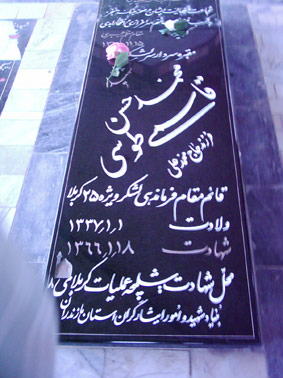 ۱۵
مقبره سردار سر
محمد حسن
قاسمی طوسی
فرزند حاج محمد علی
قائم مقام فرماندهی لشکر ویژه ۲۵ کربلا
ولادت ۱۳۳۷،۱،۱
شهادت ۱۳۶۶،۱،۱۸
محل شهادت شلمچه عملیات کربلای ۸
بنیاد شهید و امور ایثارگران استان مازندران